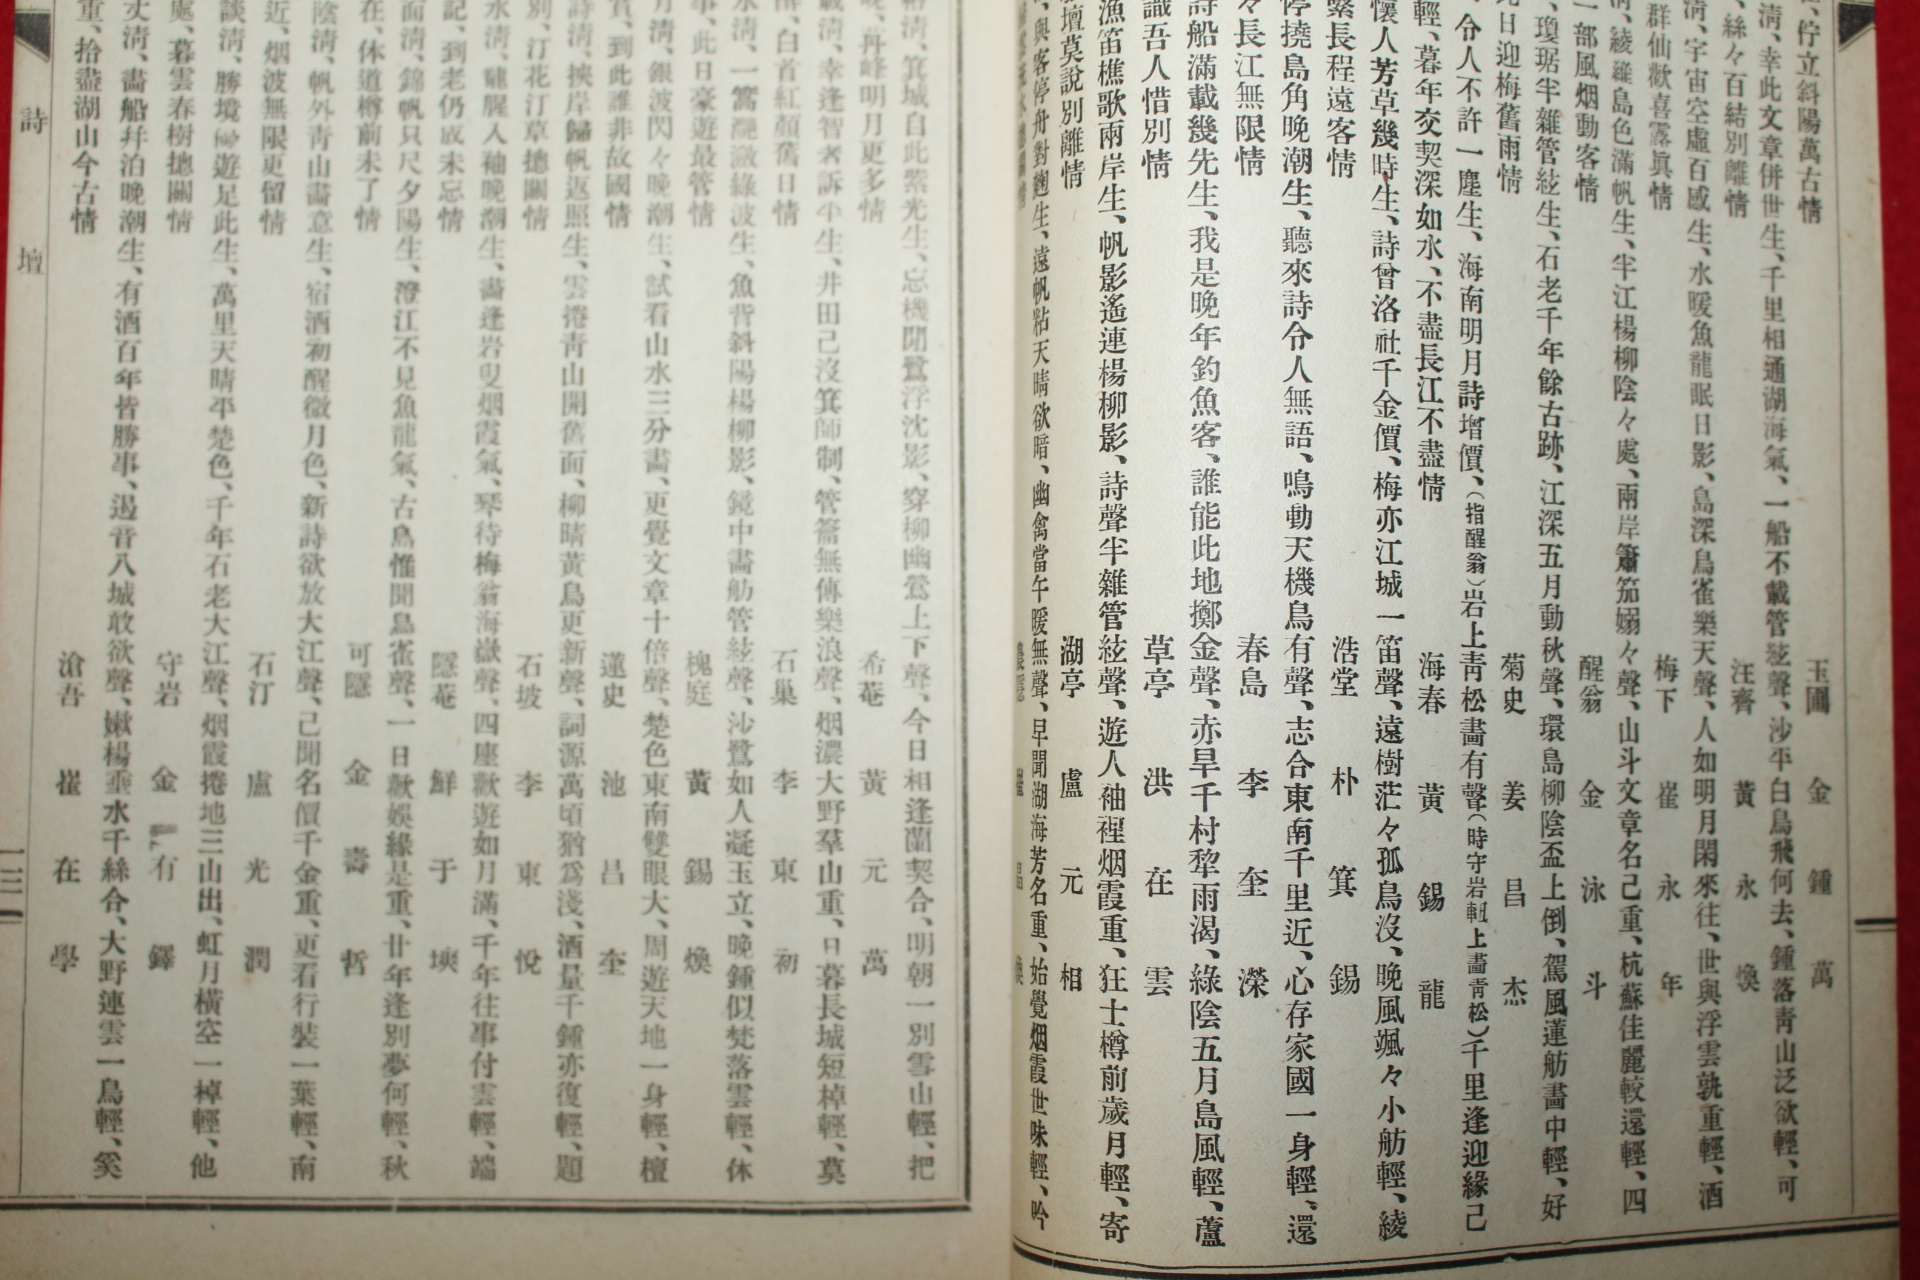 玉圃 金鍾萬
淸、幸此文章併世生、千里相通湖海氣、一船不載管絃聲、沙平白鳥飛何去、鍾落靑山泛欲輕、可
絲々百結別離情
汪齊 黃永煥
淸、宇宙空虛百感生、水暖魚龍眠日影、島深鳥雀樂天聲、人如明月閑來往、世與浮雲孰重輕、酒
群仙歡喜露眞情
梅下 崔永年
淸、綾羅島色滿帆生、半江楊柳陰々處、兩岸簫笳嫋々聲、山斗文章名已重、杭蘇佳麗較還輕、四
一部風烟動客情
醒翁 金泳斗
瓊琚半雜管絃生、石老千年餘古跡、江深五月動秋聲、環島柳陰盃上倒、駕風蓮舫畵中輕、好
此日迎梅舊雨情
菊史 姜昌杰
令人不許一塵生、海南明月詩增價、(指醒翁)岩上靑松畵有聲(時守岩軸上畵靑松)千里逢迎緣己
輕、暮年交契深如水、不盡長江不盡情
海春 黃錫龍
懷人芳草幾時生、詩曾洛社千金價、梅亦江城一笛聲、遠樹茫々孤鳥沒、晚風颯々小舫輕、綾
繫長程遠客情
浩堂 朴箕錫
停撓島角晚潮生、聽來詩令人無語、鳴動天機鳥有聲、志合東南千里近、心存家國一身輕、還
々長江無限情
春島 李奎濚
詩船滿載幾先生、我是晚年釣魚客、誰能此地擲金聲、赤旱千村犂雨渴、綠陰五月島風輕、蘆
識吾人惜別情
草亭 洪在雲
漁笛樵歌兩岸生、帆影遙連楊柳影、詩聲半雜管絃聲、遊人袖裡烟霞重、狂士樽前歲月輕、寄
壇莫說別離情
湖亭 盧元相
與客停舟對麴生、遠帆粘天晴欲暗、幽禽當午暖無聲、早聞湖海芳名重、始覺烟霞世味輕、吟
淸、箕城自此紫光生、忘機閒鷺浮沈影、穿柳幽鶯上下聲、今日相逢蘭契合、明朝一別雪山輕、把
晚、丹峰明月更多情
希菴 黃元萬
淸、幸逢智者訴半生、井田已沒箕師制、管籥無傳樂浪聲、烟濃大野羣山重、日暮長城短棹輕、莫
白首紅顏舊日情
石巢 李東初
淸、一篙灩瀲綠波生、魚背斜陽楊柳影、鏡中畵舫管絃聲、沙鷺如人凝玉立、晚鍾似梵落雲輕、休
事、此日豪遊最管情
槐庭 黃錫煥
淸、銀波閃々晚潮生、試看山水三分畵、更覺文章十倍聲、楚色東南雙眼大、周遊天地一身輕、檀
賞、到此誰非故國情
蓮史 池昌奎
淸、挾岸歸帆返照生、雲捲靑山開舊面、柳晴黃鳥更新聲、詞源萬頃猶爲淺、酒量千鍾亦復輕、題
別、汀花汀草摠關情
石坡 李東悅
淸、龍腥人袖晚潮生、畵逢岩叟烟霞氣、琴待梅翁海嶽聲、四座歡遊如月滿、千年往事付雲輕、端
記、到老仍成未忘情
隱菴 鮮于㙉
淸、錦帆只尺夕陽生、澄江不見魚龍氣、古島惟聞鳥雀聲、一日歡娛緣是重、廿年逢別夢何輕、秋
在、休道樽前未了情
可隱 金壽哲
淸、帆外靑山畵意生、宿酒初醒微月色、新詩欲放大江聲、已聞名價千金重、更看行裝一葉輕、南
近、烟波無限更留情
石汀 盧光潤
淸、勝境遊足此生、萬里天晴平楚色、千年石老大江聲、烟霞捲地三山出、虹月橫空一棹輕、他
處、暮雲春樹摠關情
守岩 金有鐸
淸、畵船幷泊晚潮生、有酒百年皆勝事、遏音八城敢欲聲、嫩楊垂水千絲合、大野連雲一鳥輕、笑
重、拾盡湖山今古情
滄吾 崔在學
詩壇 一三